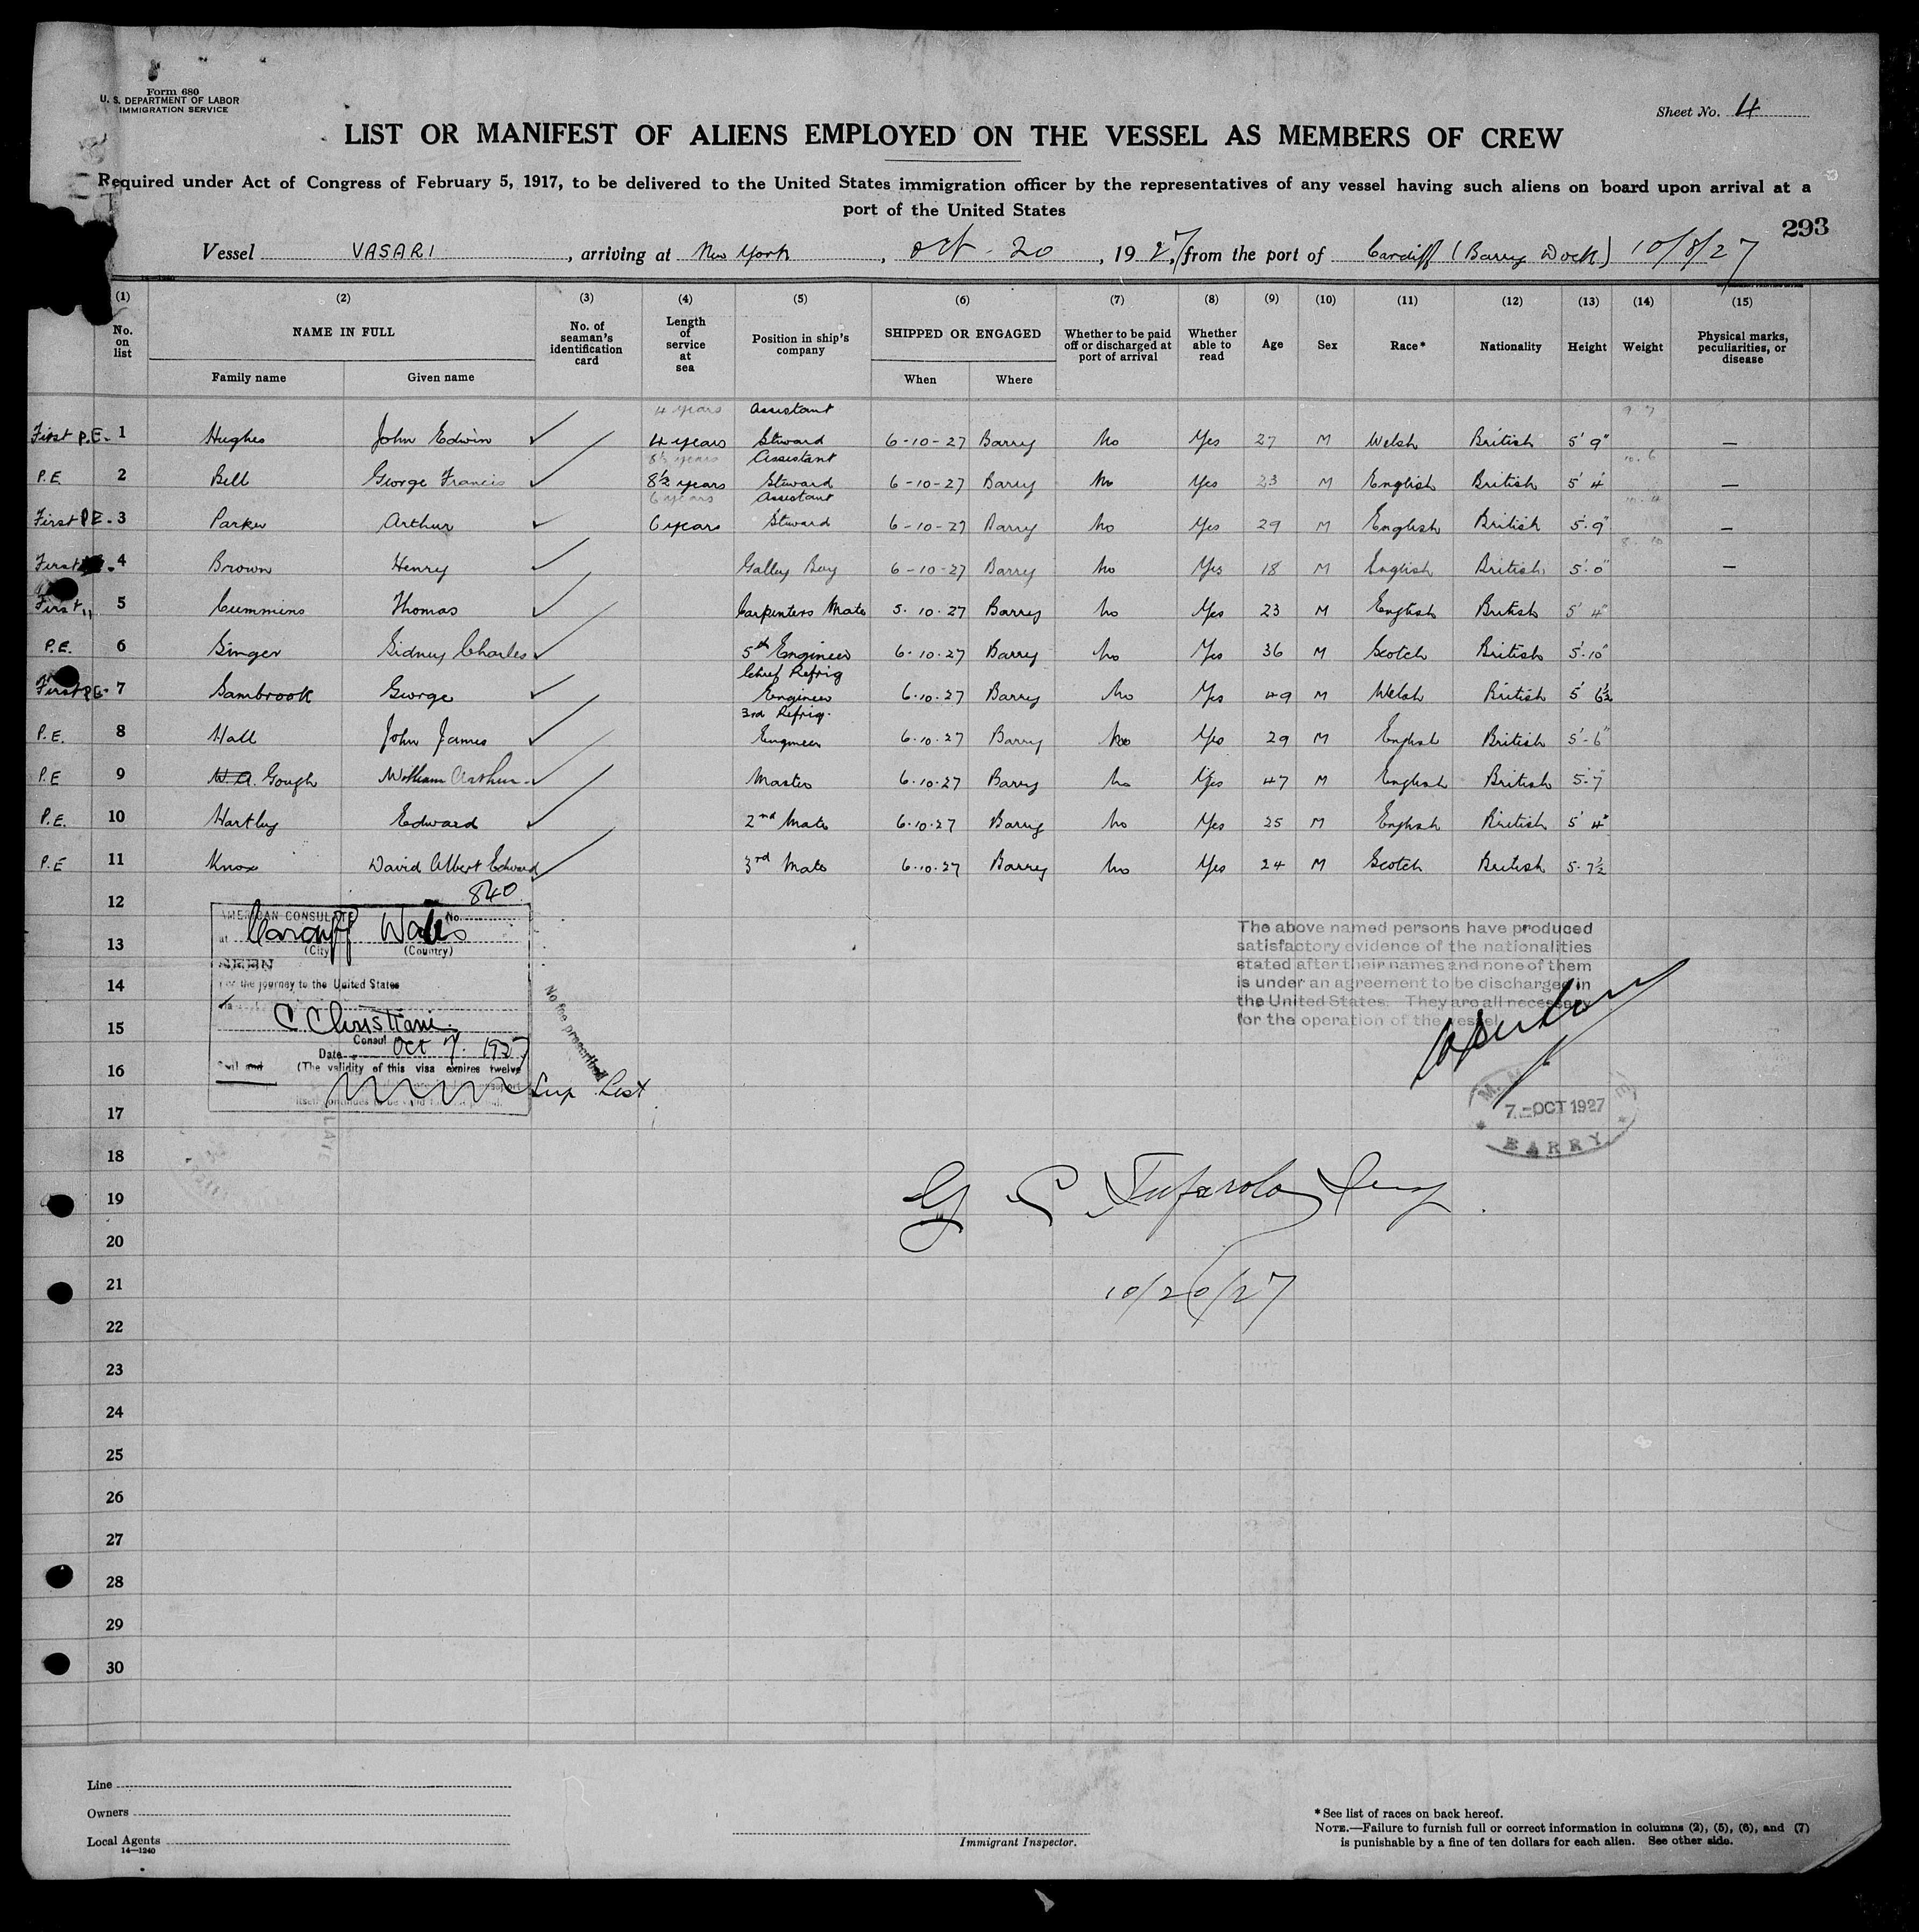 Form 680
U. S. DEPARTMENT OF LABOR
IMMIGRATION SERVICE
Sheet No. 4
LIST OR MANIFEST OF ALIENS EMPLOYED ON THE VESSEL AS MEMBERS OF CREW
Required under Act of Congress of February 5, 1917, to be delivered to the United States immigration officer by the representatives of any vessel having such aliens on board upon arrival at a
port of the United States
293
Vessel VASARI, arriving at New York, Oct - 20, 1927, from the port of Cardiff (Barry Dock) 10/8/27
(1) (2) (3) (4) (5) (6) (7) (8) (9) (10) (11) (12) (13) (14) (15)
No. on list NAME IN FULL No. of seaman's identification card Length of service at sea Position in ship's company SHIPPED OR ENGAGED Whether to be paid off or discharged at port of arrival Whether able to read Age Sex Race* Nationality Height Weight Physical marks, peculiarities, or disease
Family name Given name When Where
4 years Assistant 9. 7
First P.E. 1 Hughes John Edwin ✓ 4 years Steward 6-10-27 Barry No Yes 27 M Welsh British 5' 9" —
8½ years Assistant 10. 6
P.E. 2 Bell George Francis ✓ 8½ years Steward 6-10-27 Barry No Yes 23 M English British 5' 4" —
6 years Assistant
First P.E. 3 Parker Arthur ✓ 6 years Steward 6-10-27 Barry No Yes 29 M English British 5'.9" —
8. 10
First 4 Brown Henry ✓ Galley Boy 6-10-27 Barry No Yes 18 M English British 5'.0" —
First " 5 Cummins Thomas ✓ Carpenters Mate 5.10.27 Barry No Yes 23 M English British 5' 4"
P.E. 6 Singer Sidney Charles ✓ 5th Engineer 6.10.27 Barry No Yes 36 M Scotch British 5'.10"
Chief Refrig
First P.E. 7 Sambrook George ✓ Engineer 6.10.27 Barry No Yes 49 M Welsh British 5' 6½
3rd Refrig.
P.E. 8 Hall John James ✓ Engineer 6.10.27 Barry No Yes 29 M English British 5'-6"
P.E 9 W. A. Gough William Arthur ✓ Master 6.10.27 Barry No Yes 47 M English British 5-7"
P.E. 10 Hartley Edward ✓ 2nd Mate 6.10.27 Barry No Yes 25 M English British 5' 4"
P.E 11 Knox David Albert Edward ✓ 3rd Mate 6.10.27 Barry No Yes 24 M Scotch British 5.7½
12
840
AMERICAN CONSULATE No.
at Cardiff Wales
(City) (Country)
13
SEEN
For the journey to the United States
14
via
C. Christiani
15
Consul
Date Oct 7. 1927
(The validity of this visa expires twelve
16
Sup List
17
No fee prescribed
The above named persons have produced
satisfactory evidence of the nationalities
stated after their names and none of them
is under an agreement to be discharged in
the United States. They are all necessary
for the operation of the vessel
7-OCT 1927
BARRY
18
19
20
10/20/27
21
22
23
24
25
26
27
28
29
30
Line
Owners
Local Agents
14—1240
Immigrant Inspector.
*See list of races on back hereof.
NOTE.—Failure to furnish full or correct information in columns (2), (5), (6), and (7)
is punishable by a fine of ten dollars for each alien. See other side.